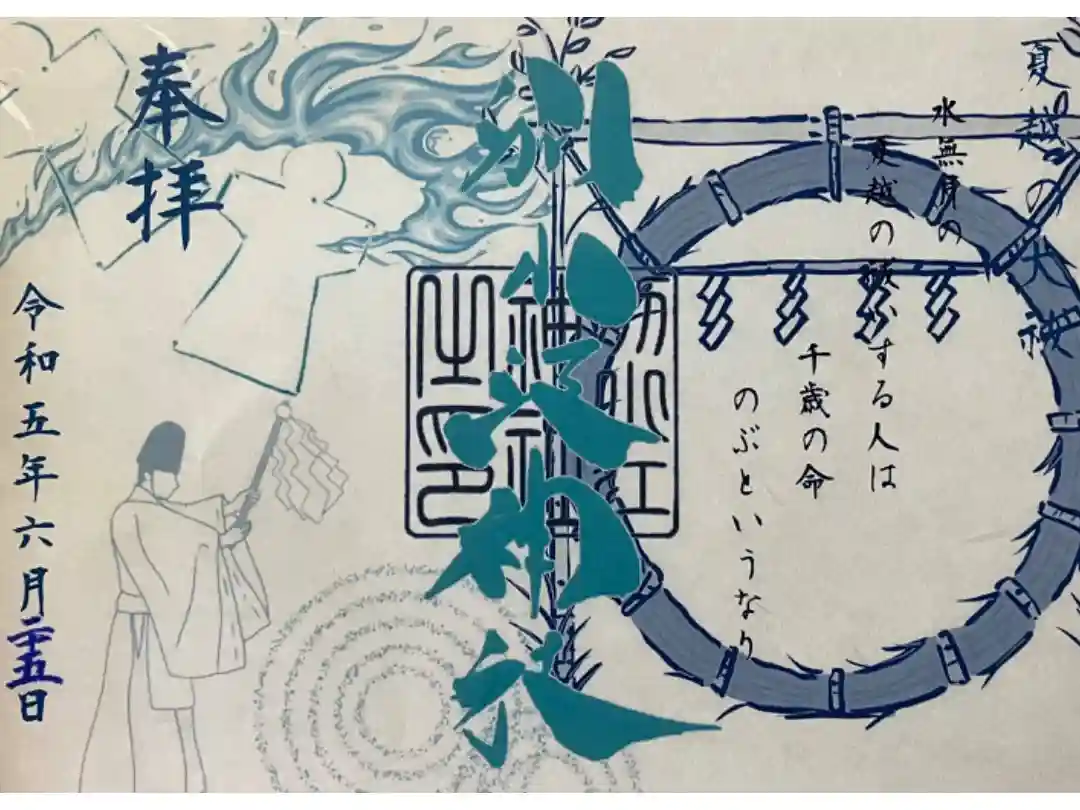 夏越の大祓
水無月の
夏越の祓いする人は
千歳の命
のぶというなり
別小江神社
別小江
神社
之印
奉拝
令和五年六月二十五日